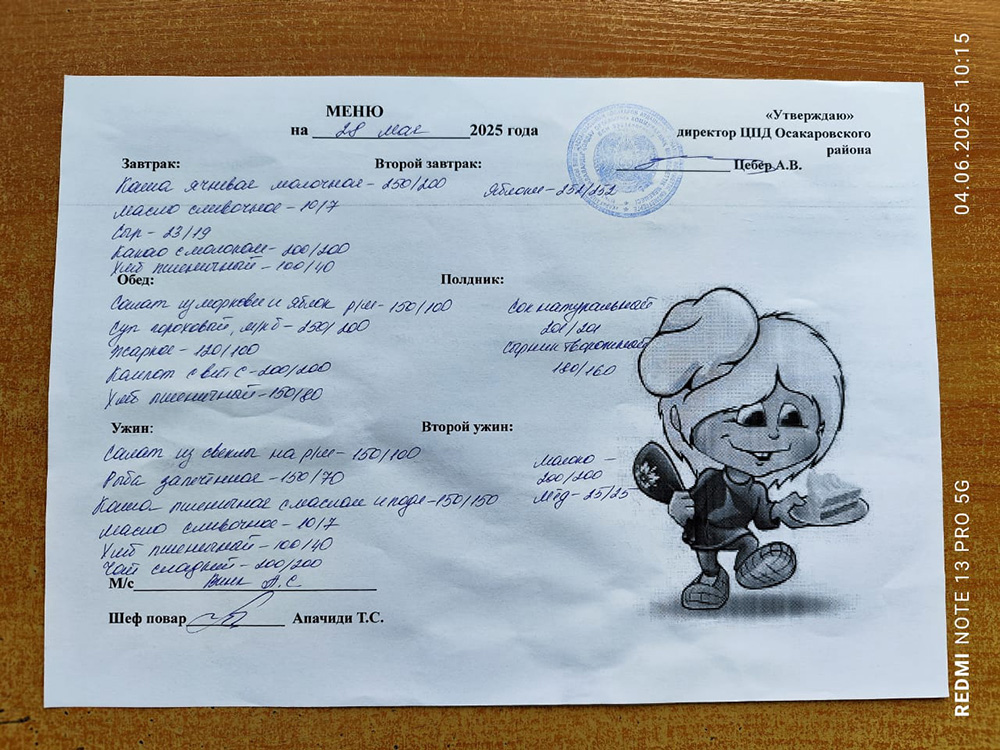 МЕНЮ
на 28 мая 2025 года
«Утверждаю»
директор ЦПД Осакаровского
района
Цебер А.В.
Завтрак:
Каша ячневая молочная - 250/200
Масло сливочное - 10/7
Сыр - 23/19
Какао с молоком - 200/200
Хлеб пшеничный - 100/40
Второй завтрак:
Яблоки - 252/252
Обед:
Салат из моркови и яблок р/м - 150/100
Суп гороховый, м/кб - 250/200
Жаркое - 120/100
Компот с вит С - 200/200
Хлеб пшеничный - 150/80
Полдник:
Сок натуральный
201/201
Сырник творожный
180/160
Ужин:
Салат из свеклы на р/м - 150/100
Рыба запечённая - 150/70
Каша пшеничная с маслом и подл - 150/150
Масло сливочное - 10/7
Хлеб пшеничный - 100/40
Чай сладкий - 200/200
Второй ужин:
Молоко -
200/200
Мёд - 25/25
М/с А.С.
Шеф повар Апачиди Т.С.
04.06.2025 10:15
REDMI NOTE 13 PRO 5G